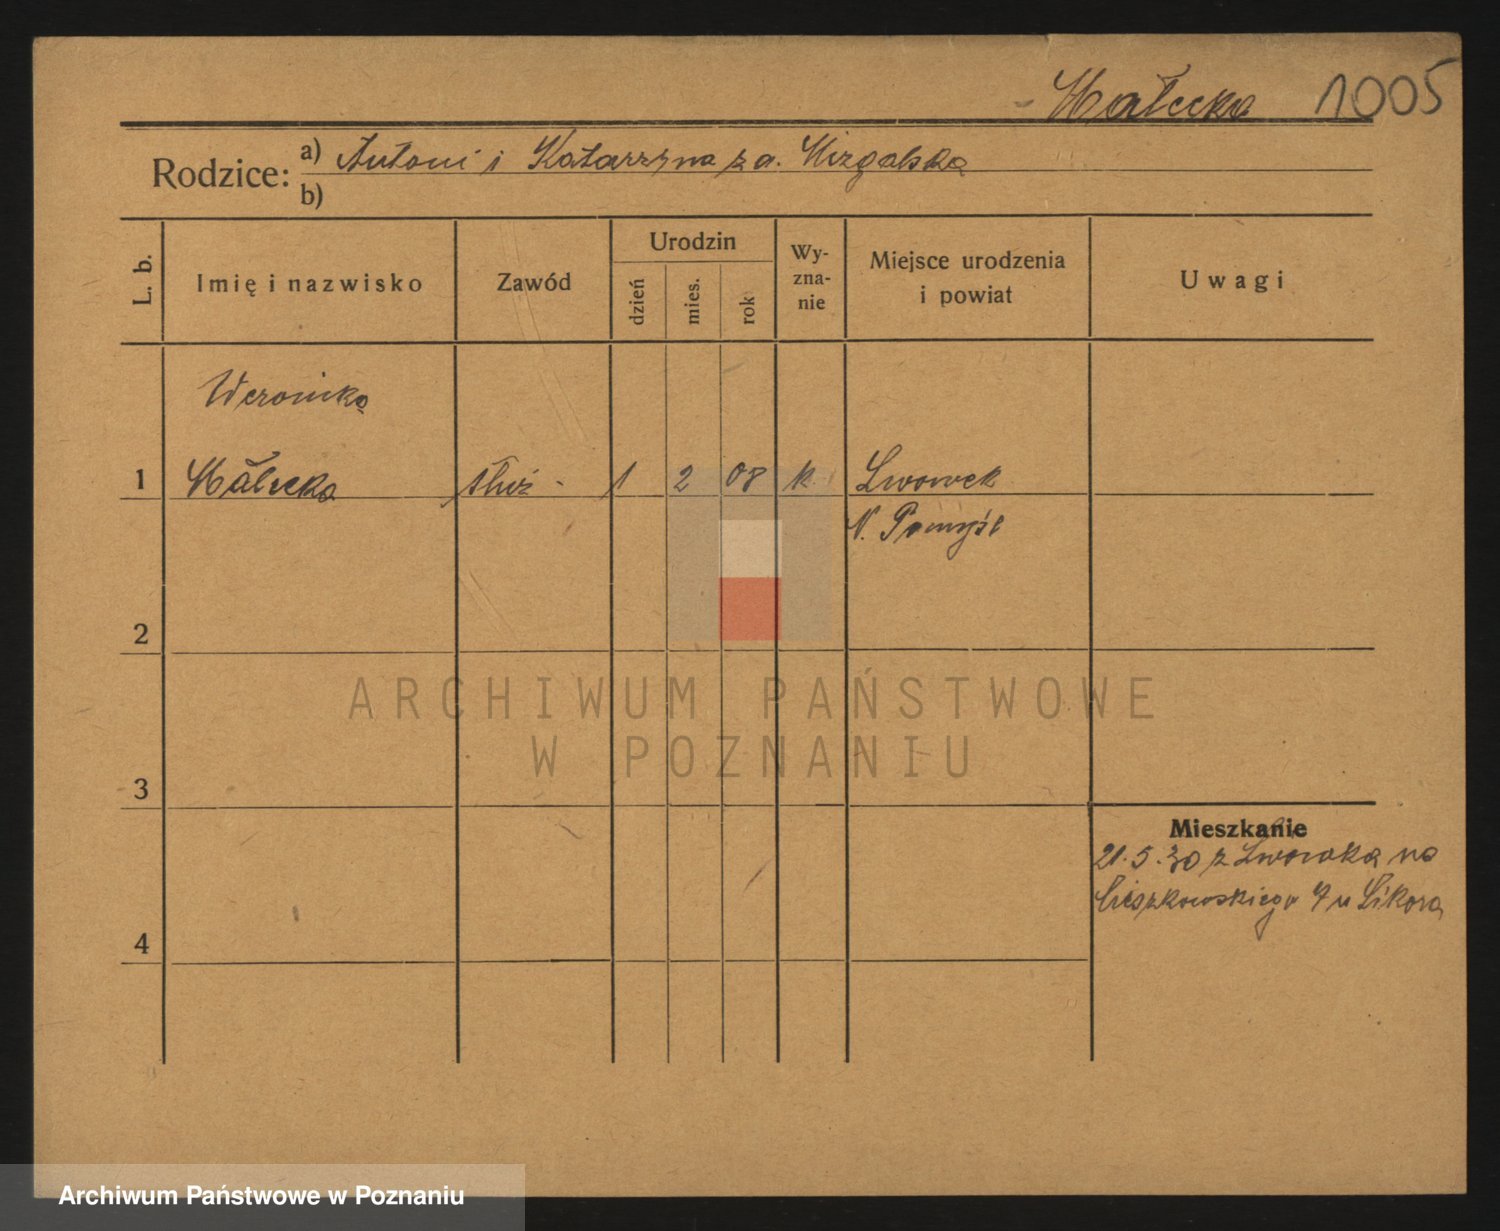 Małecka 1005
Rodzice: a) Antoni i Katarzyna z d.
b)
L. b.
Imię i nazwisko
Zawód
Urodzin
dzień
mies.
rok
Wy-
zna-
nie
Miejsce urodzenia
i powiat
Uwagi
Weronika
1 Małecka służ - 1 2 08 k Lwowek
N. Pomyśl
2
3
4
Mieszkanie
21.5.30 z Lwówka na
Cieszkowskiego 7 u Sikora
ARCHIWUM PAŃSTWOWE
W POZNANIU
Archiwum Państwowe w Poznaniu